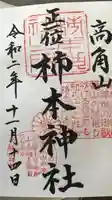 高角山
正一位
柿本神社
令和二年十一月十四日